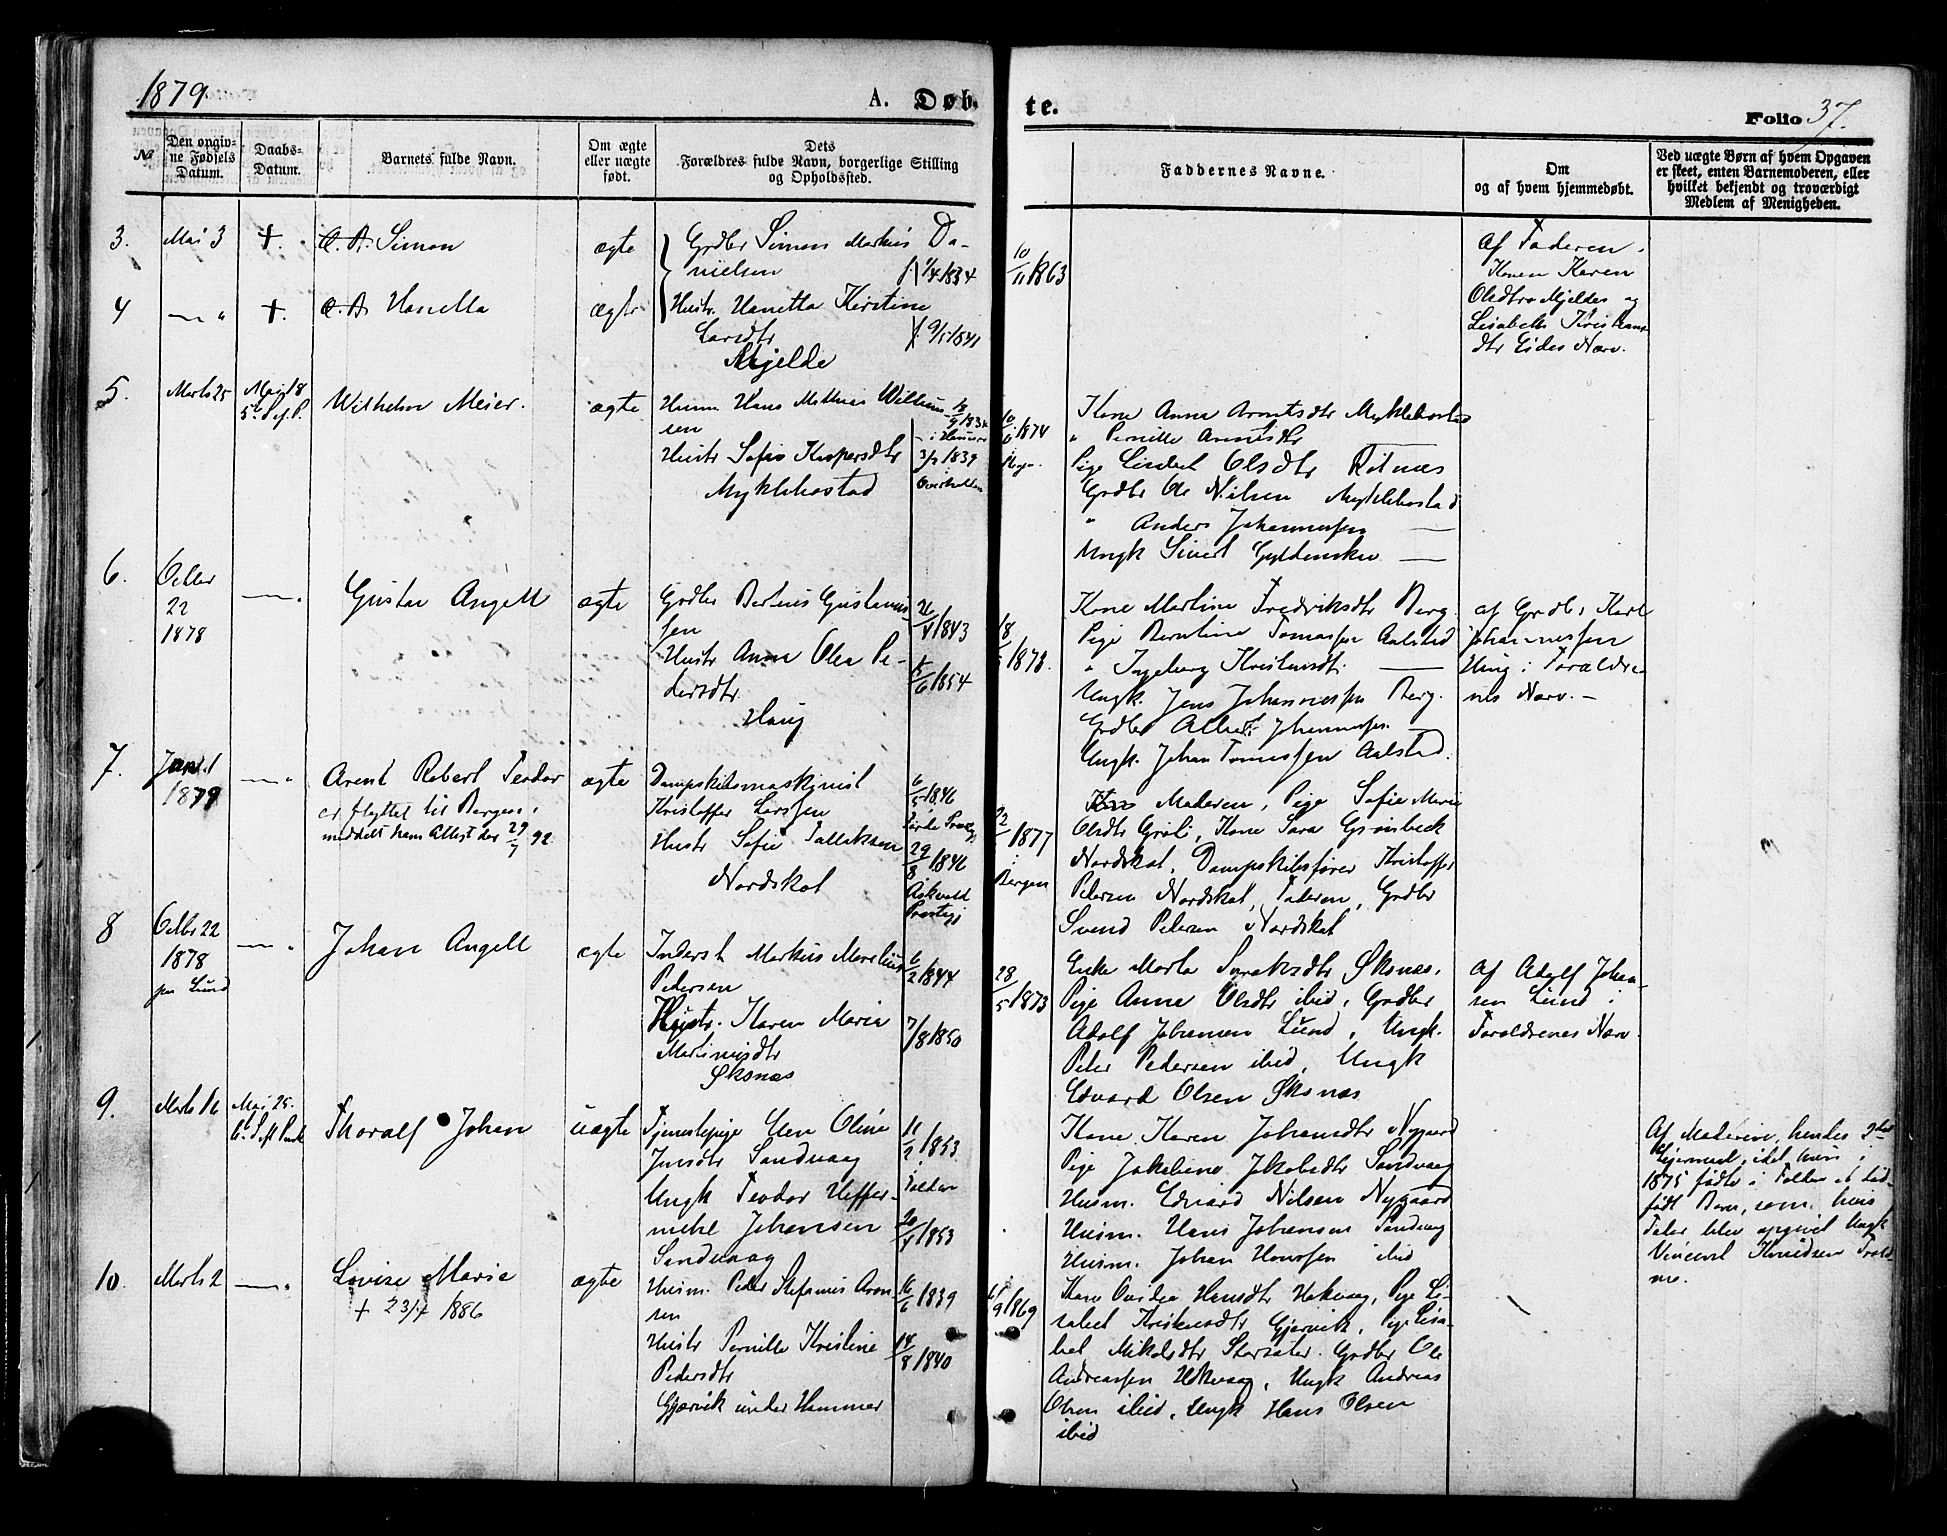 1879
A. Døb-
te.
Folio 37.
№
Den opgiv-
ne Fødsels
Datum.
Daabs-
Datum.
Barnets fulde Navn.
Om ægte
eller uægte
født.
Dets
Forældres fulde Navn, borgerlige Stilling
og Opholdssted.
Faddernes Navne.
Om
og af hvem hjemmedøbt.
Ved uægte Børn af hvem Opgaven
er skeet, enten Barnemoderen, eller
hvilket bekjendt og troværdigt
Medlem af Menigheden.
3. Mai 3 +. Simon ægte
Grdbr Simon Markus Da-
nielsen 1/4 1834
10/11 1863
Af Faderen.
Konen Karen
Olsdtr Mjeldes og
Lisabeth Kristians-
dtr Eides Nærv.
4 — " +. Hanetta ægte
Hustr. Hanetta Kirstine
Larsdtr
Mjelde
5. Marts 25 Mai 18
Wilhelm Meier. ægte
Husm. Hans Mathias Willum-
sen
Hustr Sofie Kaspersdtr 3/2 1839
Myklebostad
1874
Kone Anne Arntsdtr Myklebostad
" Pernille Arntsdtr —
Pige Lisabet Olsdtr Rotnæs
Grdbr Ole Nilsen Myklebostad
" Anders Johannessen —
Ungk Sivert Gyldenskar —
6. Octbr
22
1878
— . Gustav Angell ægte
Grdbr Berteus Gustavus-
sen 26/4 1843
Hustr Anne Olea Pe-
dersdtr. 1854
Haug
18/5 1878.
Kone Martine Fredriksdtr Berg.
Pige Berntine Tomassen Aalstad
" Ingeborg Kristensdt. —
Ungk. Jens Johannessen Berg.
Grdbr Albert Johannessen —
Ungk. Johan Tomessen Aalstad.
af Grdbr Karl
Johannessen
Haug i Forældre-
nes Nærv. —
7. Jan. 1
1879
— " Arent Robert Teodor ægte
er flyttet til Bergen,
meddelt ham Attest der 29/7 92
Dampskibsmaskinist
Kristoffer Larssen 6/5 1846
Hustr Sofie Tallaksen 29/8 1846
Nordskot Askvold
Præstegj
22/ 1877
i
Bergen
Moderen, Pige Sofie Marie
Olsdtr Grøli, Kone Sara Grønbeck
Nordskot, Dampskibsfører Kristoffer
Petersen Nordskot, Faderen, Grdbr
Svend Petersen Nordskot
8 Octbr 22
1878
paa Lund
— " Johan Angell ægte
Inderst Markus Marelius 6/2 1844
Pedersen
Hustr. Karen Maria 7/8 1850
Martinusdtr
Øksnæs
28/5 1873
Enke Marta Syraksdtr Øksnæs,
Pige Anne Olsdtr ibid, Grdbr
Adolf Johansen Lund, Ungk.
Peter Pedersen ibid, Ungk
Edvard Olsen Øksnæs
Af Adolf Johan-
sen Lund i
Forældrenes Nærv.
9. Marts 16 Mai 25.
Thoralf Johan uægte
Tjenestepige Elen Oline 11/2 1853
Jensdtr Sandvaag i
Folden
Ungk Teodor Heffer-
mehl Johansen 20/4 1853
Sandvaag
Kone Karen Johansdtr Nygaard
Pige Jakobine Jakobsdtr Sandvaag
Husm. Edvard Nilsen Nygaard
Husm. Hans Johansen Sandvaag
Husm. Johan Hanssen ibid
Af Moderen, hendes 2det
Leiermaal, idet hun i
1875 fødte i Folden et død-
født Barn, som hvis
Fader blev opgivet Ungk
Vincent Knudsen
10. Marts 2 — " Lovise Marie ægte
+ 23/4 1886
Husm. Peder Stefanus Aron- 16/6 1839
sen
Hustr Pernille Kristine 14/8 1840
Pedersdtr
Gjærvik under Hammer
1869
Kone Ovidia Hansdtr Hokvaag, Pige Li-
sabet Kristensdtr Gjærvik, Pige Lisa-
bet Mikalsdtr Storsæter. Grdbr Ole
Andreassen Hokvaag, Ungk Andreas
Olsen ibid, Ungk Hans Olsen
ibid